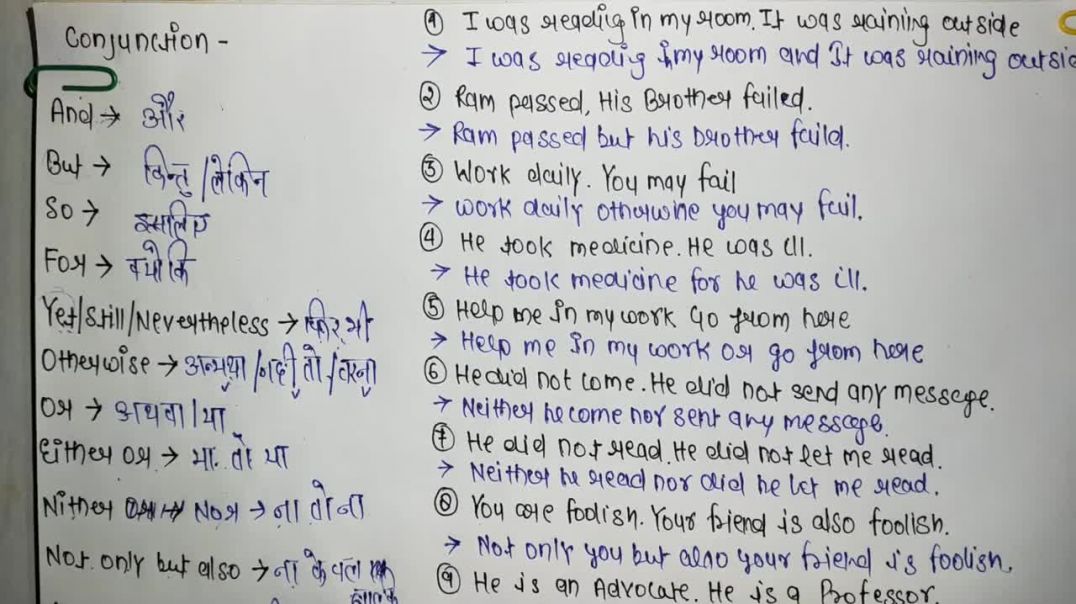 Conjunction -
And → और
But → किन्तु/लेकिन
So → इसलिए
For → क्योकि
Yet/still/Nevertheless → फिर भी
Otherwise → अन्यथा/नही तो/वरना
Or → अथवा/या
Either or → या तो या
Nither Nor → ना तो ना
Not only but also → ना केवल
① I was reading in my room. It was raining outside
→ I was reading in my room and It was raining outsid
② Ram passed, His Brother failed.
→ Ram passed but his brother faild.
③ Work daily. You may fail
→ work daily otherwine you may fail.
④ He took medicine. He was ill.
→ He took medicine for he was ill.
⑤ Help me in my work Go from here
→ Help me in my work or go from here
⑥ He did not come. He did not send any messege.
→ Neither he come nor sent any messege.
⑦ He did not read. He did not let me read.
→ Neither he read nor did he let me read.
⑧ You are foolish. Your friend is also foolish.
→ Not only you but also your friend is foolish.
⑨ He is an Advocate. He is a Professor.